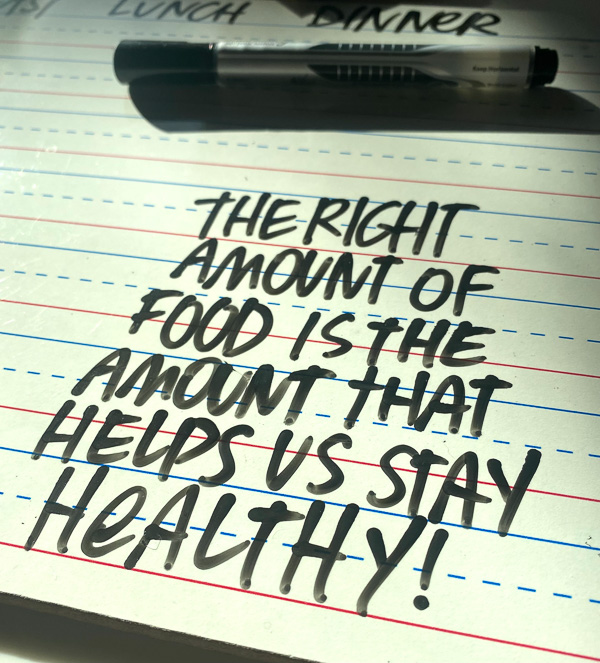 LUNCH DINNER
THE RIGHT
AMOUNT OF
FOOD IS THE
AMOUNT THAT
HELPS US STAY
HEALTHY!